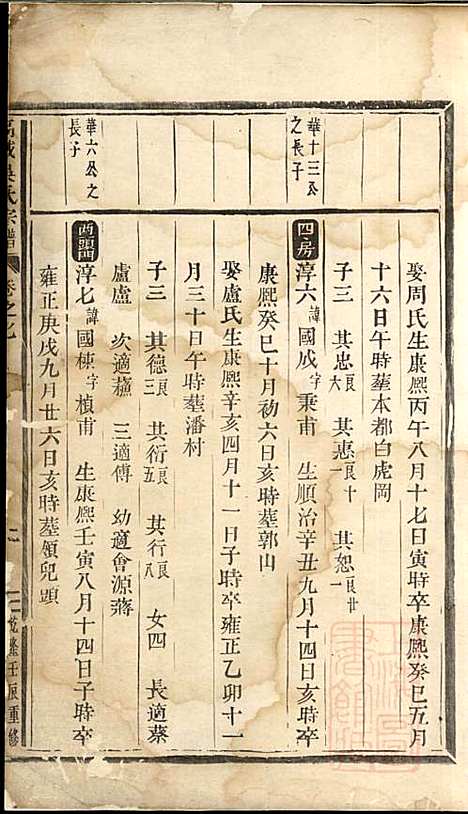 娶周氏生康熙丙午八月十七日寅時卒康熙癸巳五月
十六日午時葬本都白虎岡
子三 其忠良六 其惠良十一 其恕良廿一
華十三公之長子
四房 淳六諱國成字秉甫 生順治辛丑九月十四日亥時卒
康熙癸巳十月初六日亥時葬郭山
娶盧氏生康熙辛亥四月十一日子時卒雍正乙卯十一
月三十日午時葬潘村
子三 其德良三 其衍良五 其行良八 女四 長適蔡
盧盧 次適蘓 三適傅 幼適會源蔣
華六公之長子
西頭門 淳七諱國棟字楨甫 生康熙壬寅八月十四日子時卒
雍正庚戌九月廿六日亥時葬領兒頭
氏宗譜 卷之
壬辰重修